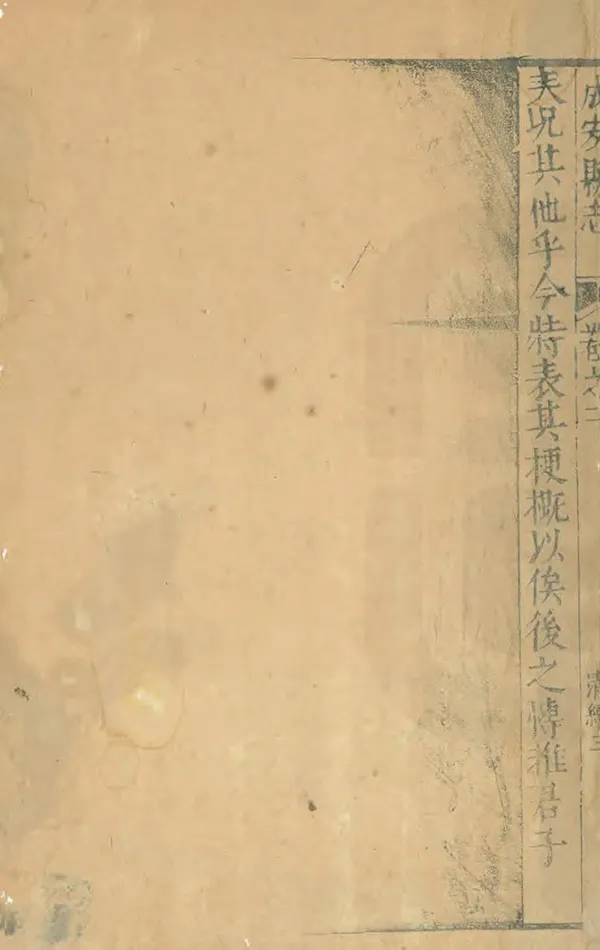 成安縣志
卷之二
三
矣况其他乎今特表其梗概以俟後之博雅君子